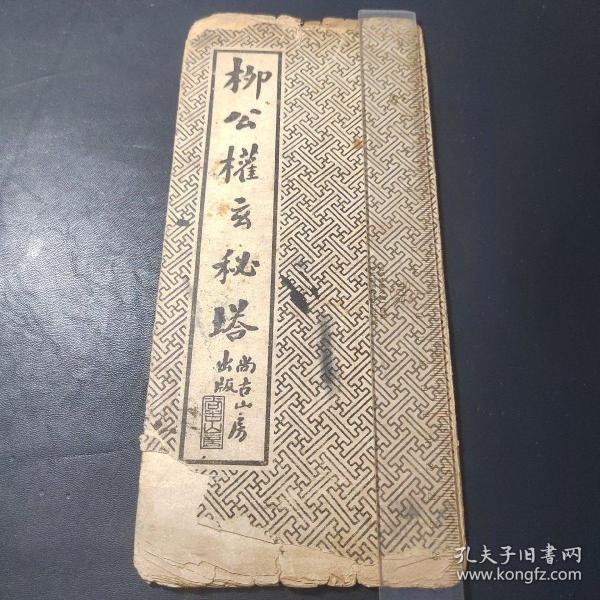 柳公權玄秘塔
尚古山房
出版
孔夫子旧書网
www.kongfz.com